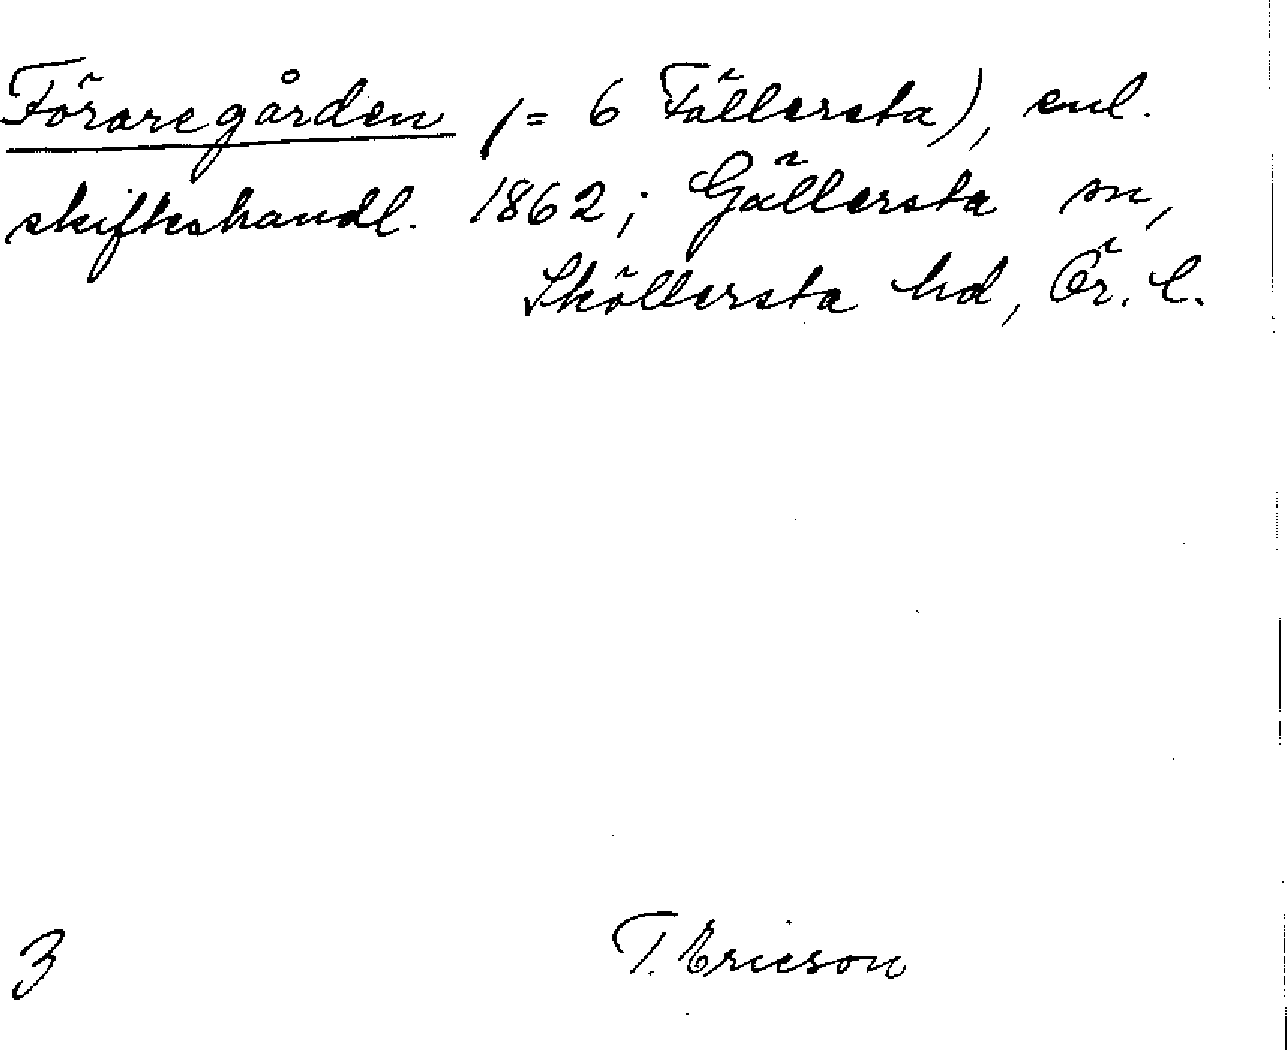 Föraregården (= 6 Fällersta), enl.
skifteshandl. 1862; Gällersta sn,
Sköllersta hd, Ör. l.
3 T. Ericson